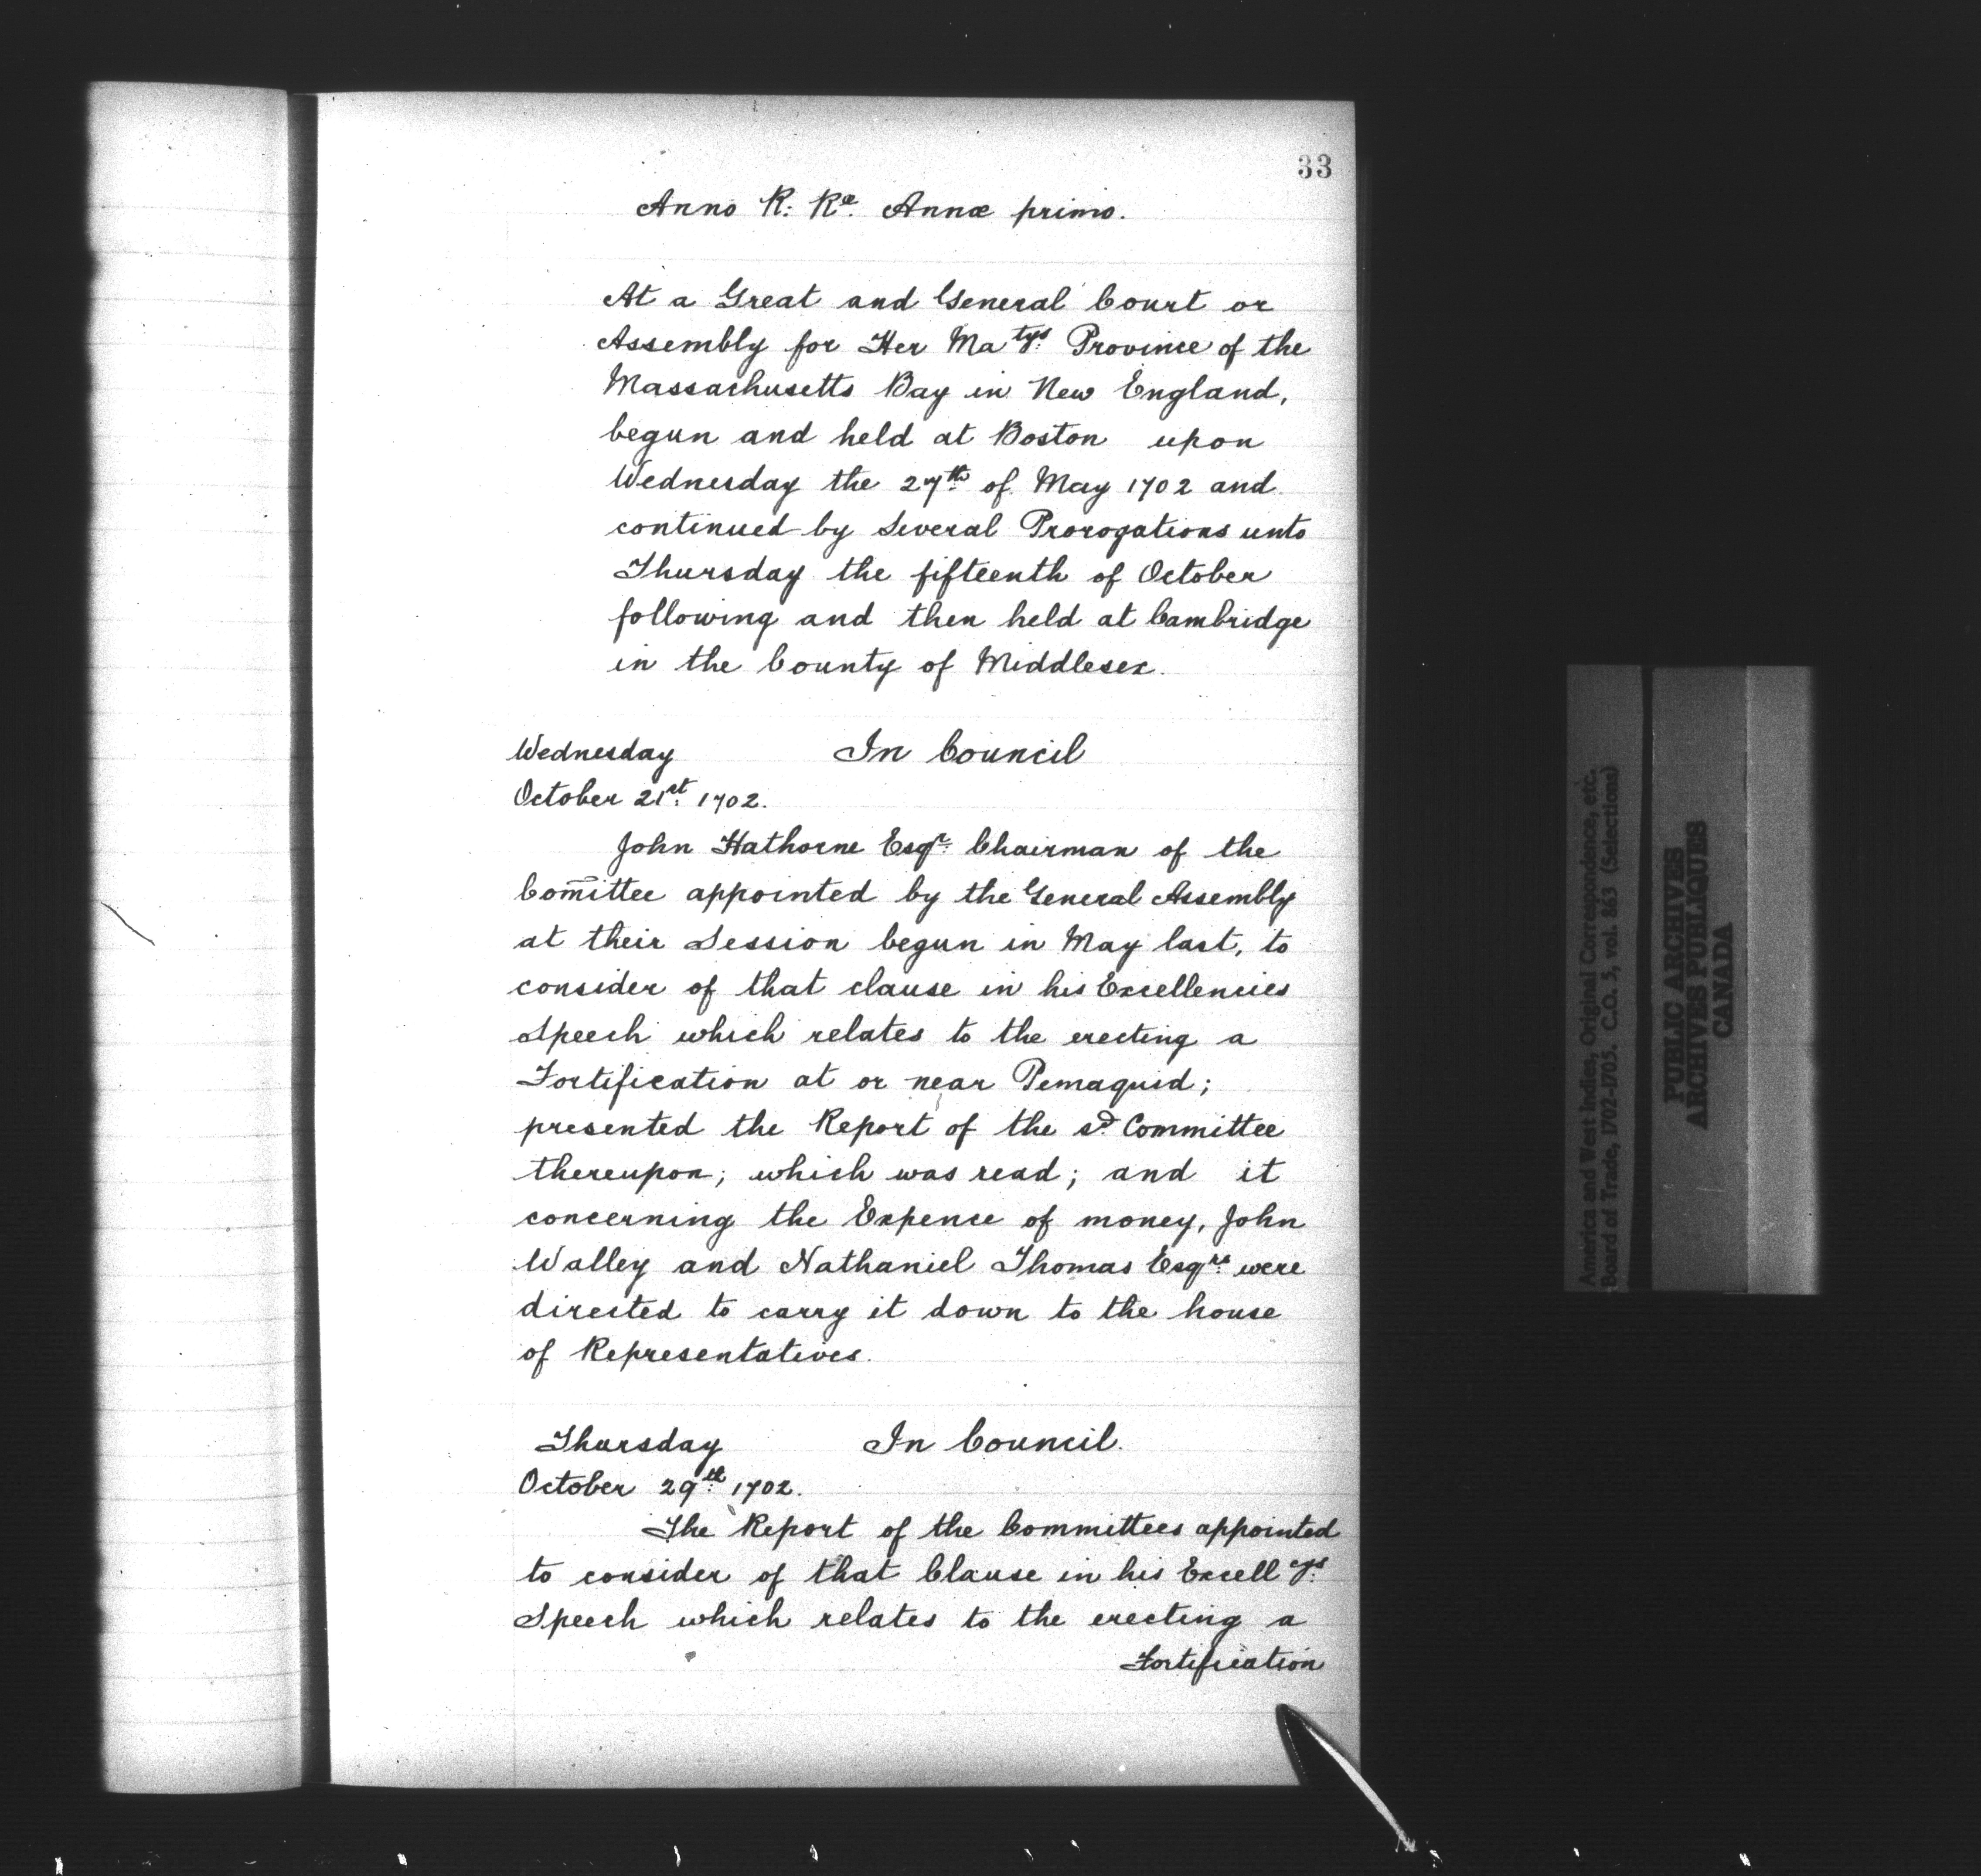 33
Anno R: Ræ. Annæ primo.
At a Great and General Court or
Assembly for Her Matys. Province of the
Massachusetts Bay in New England,
begun and held at Boston upon
Wednesday the 27th. of May 1702 and
continued by Several Prorogations unto
Thursday the fifteenth of October
following and then held at Cambridge
in the County of Middlesex.
Wednesday In Council
October 21st. 1702.
John Hathorne Esqr. Chairman of the
Com̅ittee appointed by the General Assembly
at their Session begun in May last, to
consider of that clause in his Excellencies
Speech which relates to the erecting a
Fortification at or near Pemaquid;
presented the Report of the sd. Committee
thereupon; which was read; and it
concerning the Expence of money, John
Walley and Nathaniel Thomas Esqrs. were
directed to carry it down to the house
of Representatives.
Thursday In Council.
October 29th. 1702.
The Report of the Committees appointed
to consider of that Clause in his Excellcys.
Speech which relates to the erecting a
Fortification
America and West Indies, Original Correspondence, etc.
Board of Trade, 1702-1705. C.O. 5, vol. 863 (Selections)
PUBLIC ARCHIVES
ARCHIVES PUBLIQUES
CANADA